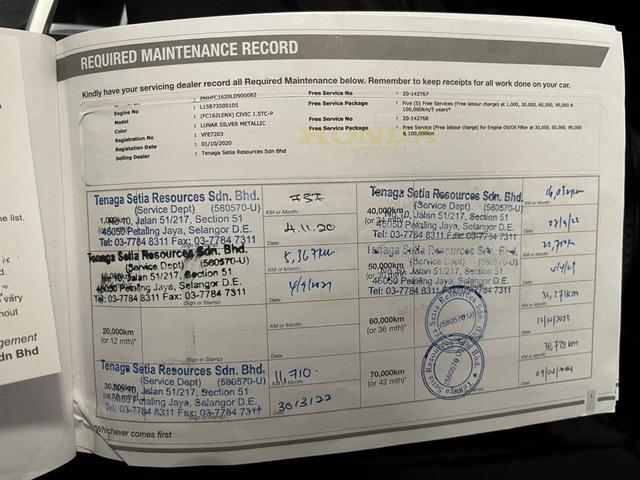 he list.
vary
hout
gement
dn Bhd
REQUIRED MAINTENANCE RECORD
Kindly have your servicing dealer record all Required Maintenance below. Remember to keep receipts for all work done on your car.
PMHFC1620LD900082
Engine No : L15B73500105
Model : (FC162LENX) CIVIC 1.5TC-P
Color : LUNAR SILVER METALLIC
Registration No : VFE7203
Registation Date : 01/10/2020
Selling Dealer : Tenaga Setia Resources Sdn Bhd
Free Service No : 20-142767
Free Service Package : Five (5) Free Services (Free labour charge) at 1,000, 30,000, 60,000, 90,000 & 100,000km/5 years*
Free Service No : 20-142768
Free Service Package : Free Service (Free labour charge) for Engine Oil/Oil Filter at 30,000, 60,000, 90,000 & 100,000km
HONDA
Tenaga Setia Resources Sdn. Bhd.
(Service Dept) (580570-U)
No. 10, Jalan 51/217, Section 51
46050 Petaling Jaya, Selangor D.E.
Tel: 03-7784 8311 Fax: 03-7784 7311
KM or Month:
4.11.20
Date:
Tenaga Setia Resources Sdn. Bhd.
(Service Dept) (580570-U)
Jalan 51/217, Section 51
46050 Petaling Jaya, Selangor D.E.
Tel: 03-7784 8311 Fax: 03-7784 7311
(Sign or Stamp)
5,367km
KM or Month:
4/9/2021
Date:
20,000km
(or 12 mth)*
(Sign or Stamp)
KM or Month:
Date:
30,000km
Tenaga Setia Resources Sdn. Bhd.
(Service Dept) (580570-U)
Jalan 51/217, Section 51
46050 Petaling Jaya, Selangor D.E.
Tel: 03-7784 8311 Fax: 03-7784 7311
(Sign or Stamp)
11,710
KM or Month:
30/3/22
Date:
40,000km
Tenaga Setia Resources Sdn. Bhd.
(Service Dept) (580570-U)
Jalan 51/217, Section 51
46050 Petaling Jaya, Selangor D.E.
Tel: 03-7784 8311 Fax: 03-7784 7311
KM or Month:
Date:
50,000km
Tenaga Setia Resources Sdn. Bhd.
(Service Dept) (580570-U)
Jalan 51/217, Section 51
46050 Petaling Jaya, Selangor D.E.
Tel: 03-7784 8311 Fax: 03-7784 7311
KM or Month:
Date:
60,000km
(or 36 mth)*
Tenaga Setia Resources Sdn
(580570-U)
31,271km
KM or Month:
12/10/2023
Date:
70,000km
(or 42 mth)*
Tenaga Setia Resources Sdn
(580570-U)
38,778km
KM or Month:
Date:
*Whichever comes first
1